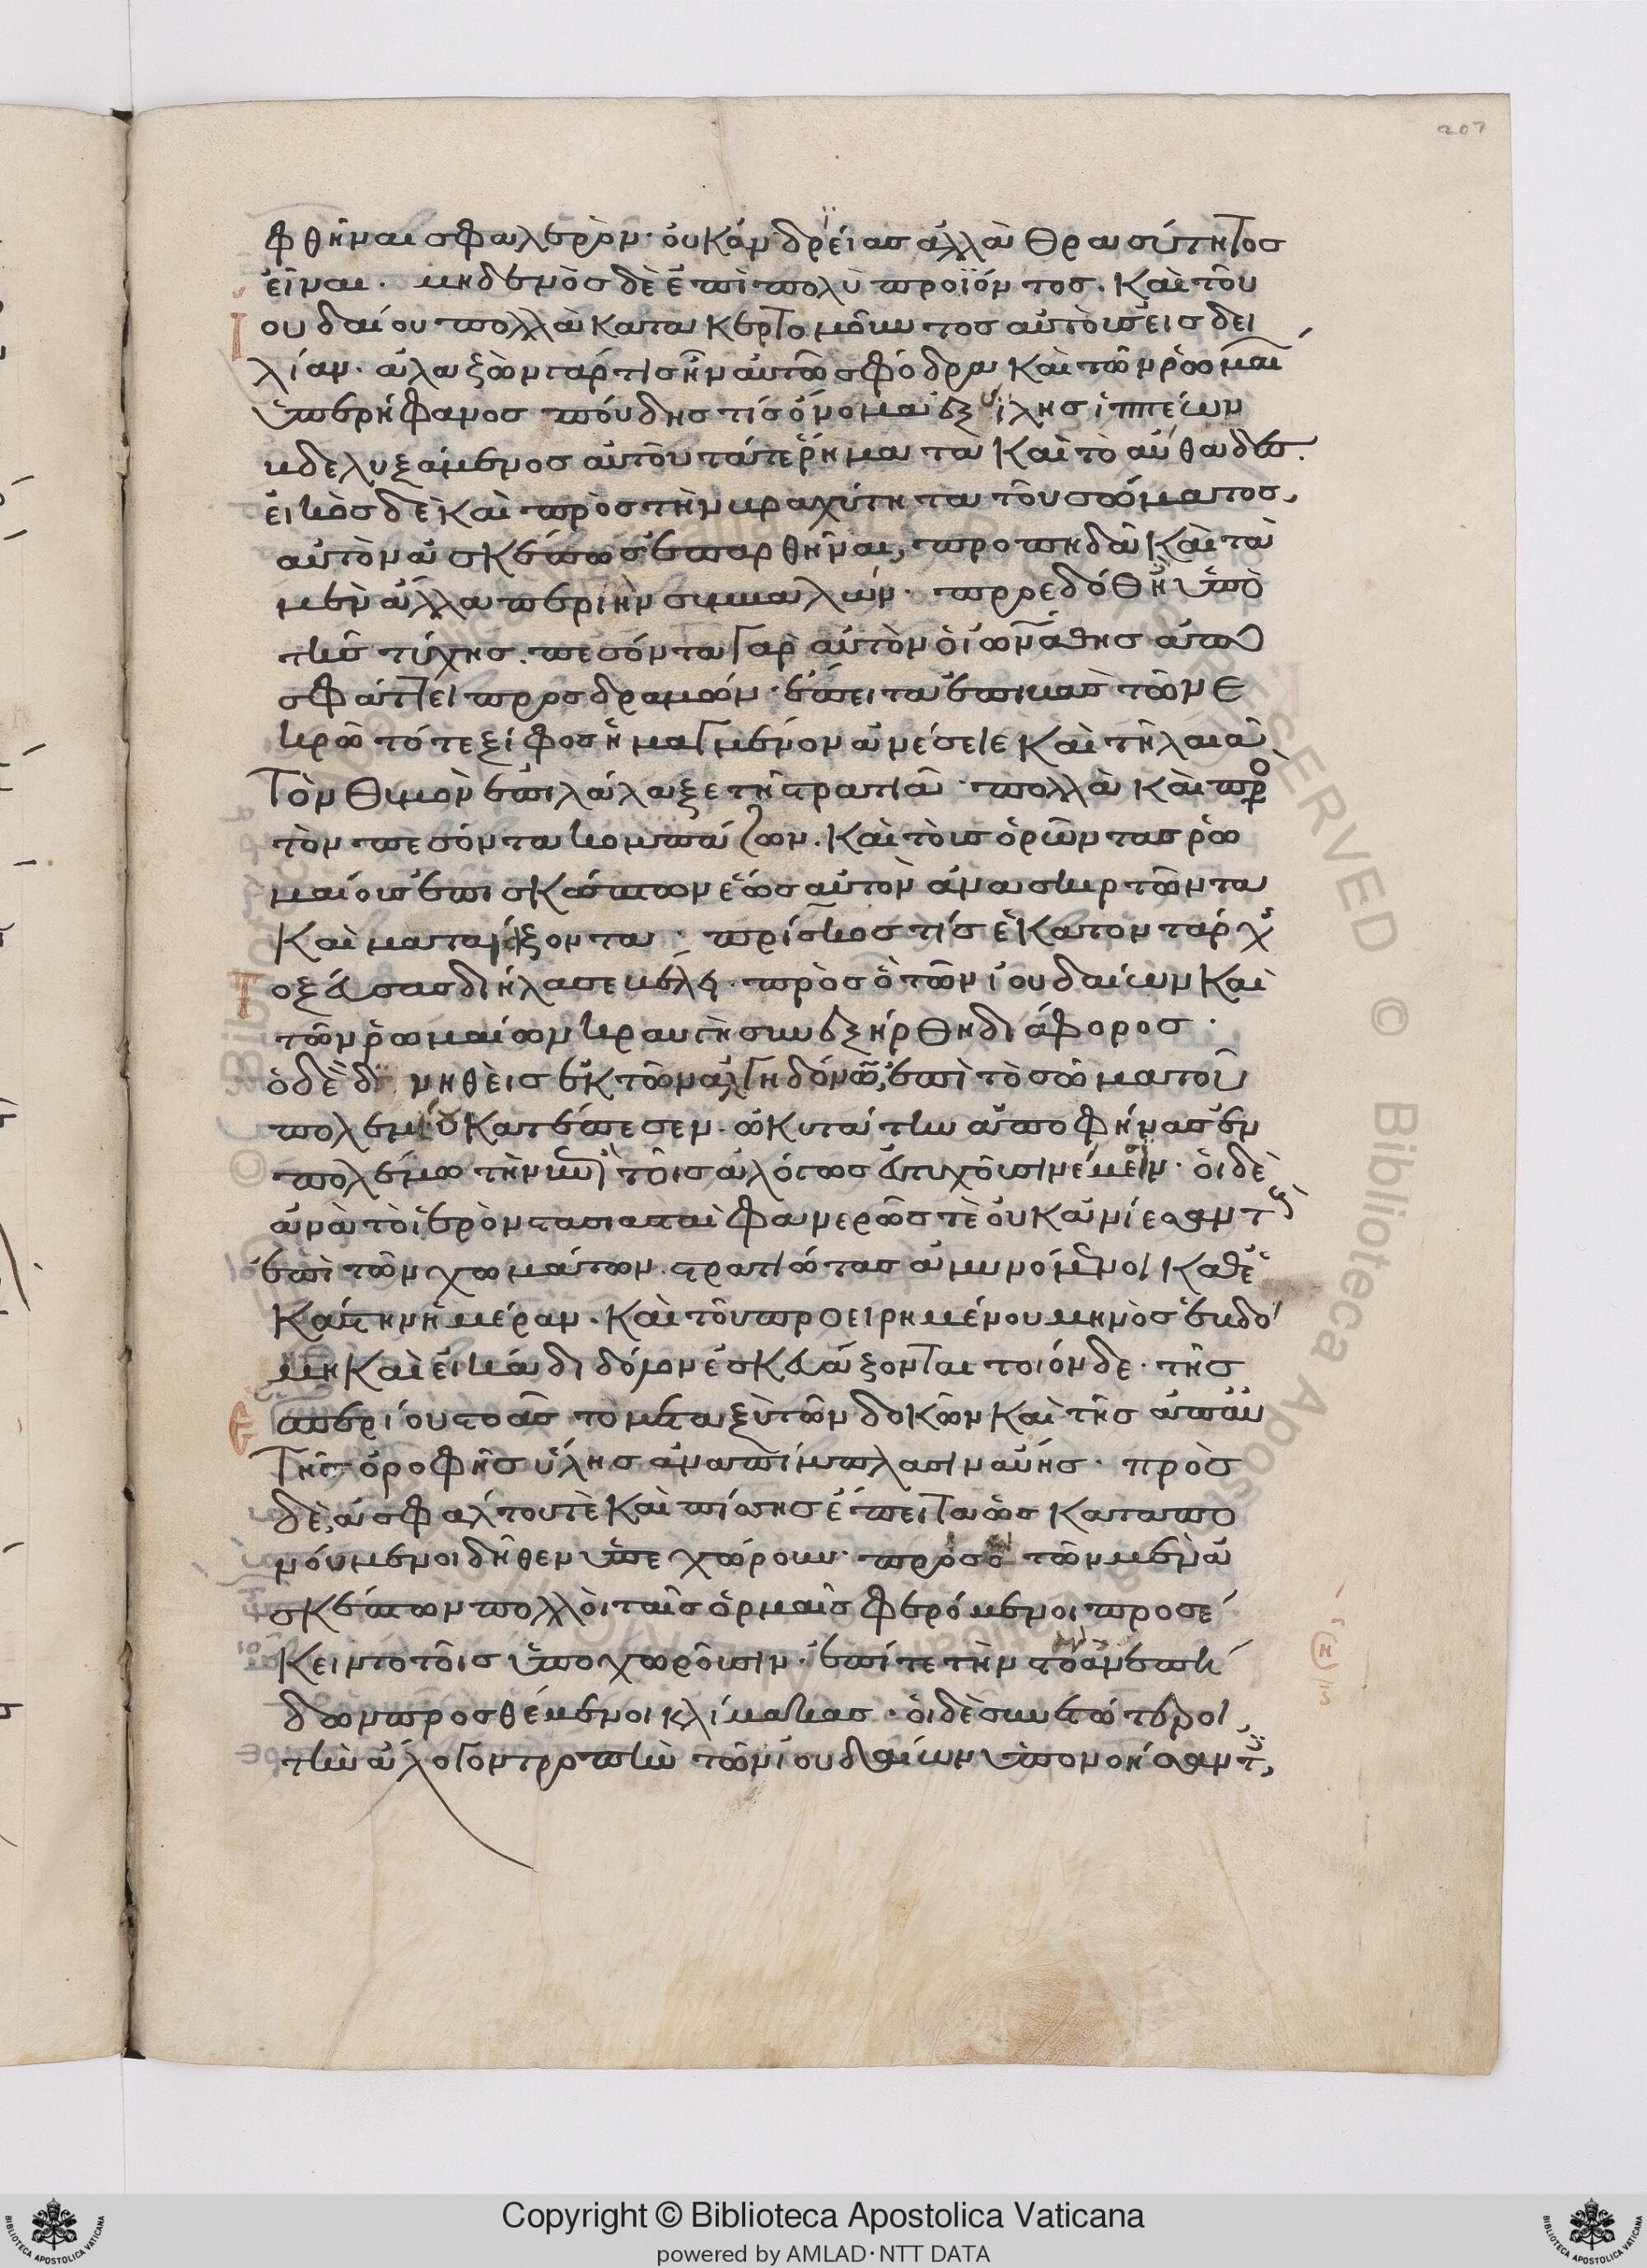 207
φθῆναι σφαλερὸν· οὐκ ἀνδρείασ ἀλλὰ θρασύτητοσ
εἶναι. μηδενὸσ δὲ ἐπὶ πολὺ προϊόντοσ. καὶ τοῦ
ἰουδαίου πολλὰ κατακερτομοῦντοσ αὐτοῖσ εἰσ δει
λίαν. ἀλαζὼν γάρ τισ ἦν αὐτῶ σφόδρα καὶ τῶν ῥωμαί
ὑπερήφανοσ πούδησ τίσ ὄνομα ἐξ ἴλησ ἱππέων
βδελυξάμενοσ αὐτοῦ τά τε ῥήματα καὶ τὸ αὔθαδεσ.
εἰκὸσ δὲ καὶ πρὸσ τὴν βραχύτητα τοῦ σώματοσ,
αὐτὸν ἀσκέπτωσ ἐπαρθῆναι, προπηδᾶ καὶ τὰ
μὲν ἄλλα περιῆν συμβαλών· προεδόθη ὑπὸ
τῆσ τύχησ. πεσόντα γὰρ αὐτὸν ὁ ἰωνάθησ αὐτοῦ
σφάττει προσδραμών· ἔπειτα ἐπιβὰσ τῶ νε
κρῶ τό τε ξίφοσ ἡμαγμένον ἀνέσειε καὶ τῆ λαιᾶ
τὸν θυμὸν ἐπιλάλαξε τῆ στρατιᾶ· πολλὰ καὶ πρὸ
τὸν πεσόντα κομπάζων. καὶ τοὺσ ὁρῶντασ ῥω
μαίουσ ἐπισκώπτων ἕωσ αὐτὸν ἀνασκιρτῶντα
καὶ ματαΐζοντα· πρίσκοσ τίσ ἑκατοντάρχ
τοξεύσασ διήλασε βέλει· πρὸσ ὃ τῶν ἰουδαίων καὶ
τῶν ῥωμαίων κραυγὴ συνεξήρθη διάφοροσ·
ὁ δὲ δινηθεὶσ ἐκ τῶν ἀλγηδόνων, ἐπὶ τὸ σῶμα τοῦ
πολεμίου κατέπεσεν. ὠκυτάτην ἀποφήνασ ἐν
πολέμω τὴν τοῖσ ἀλόγωσ εὐτυχοῦσι νέμεσιν· οἱ δὲ
ἀνὰ τὸ ἱερὸν στασιασταὶ φανερῶσ τὲ οὐκ ἀνίεσαν τ
ἐπὶ τῶν χωμάτων. στρατιώτασ ἀμυνόμενοι καθ᾽ ἑ
κάστην ἡμέραν. καὶ τοῦ προειρημένου μηνὸσ ἑβδό
μη καὶ εἰκάδι δόλον ἐσκευάζονται τοιόνδε· τῆσ
ἑσπερίου στοᾶσ τὸ μεταξὺ τῶν δοκῶν καὶ τῆσ ὑπ᾽ αὐ
τῆσ ὀροφῆσ ὕλησ ἀναπίμπλασιν αὔησ· πρὸσ
δὲ, ἀσφάλτου τὲ καὶ πίσσησ ἔπειτα ὡσ καταπο
νούμενοι δῆθεν ὑπεχώρουν· πρὸσ ὃ τῶν μὲν ἀ
σκέπτων πολλοὶ ταῖσ ὁρμαῖσ φερόμενοι προσέ
κειντο τοῖσ ὑποχωροῦσιν· ἐπί τε τὴν στοὰν ἐπή
δων προσθέμενοι κλίμακασ· οἱ δὲ συνετώτεροι,
τὴν ἄλογον τροπὴν τῶν ἰουδαίων ὑπονοήσαντ,